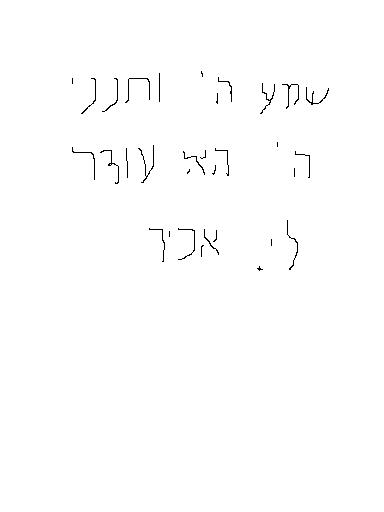 שמע ה' ותנני
ה' הא עוזר
לי. אכיך